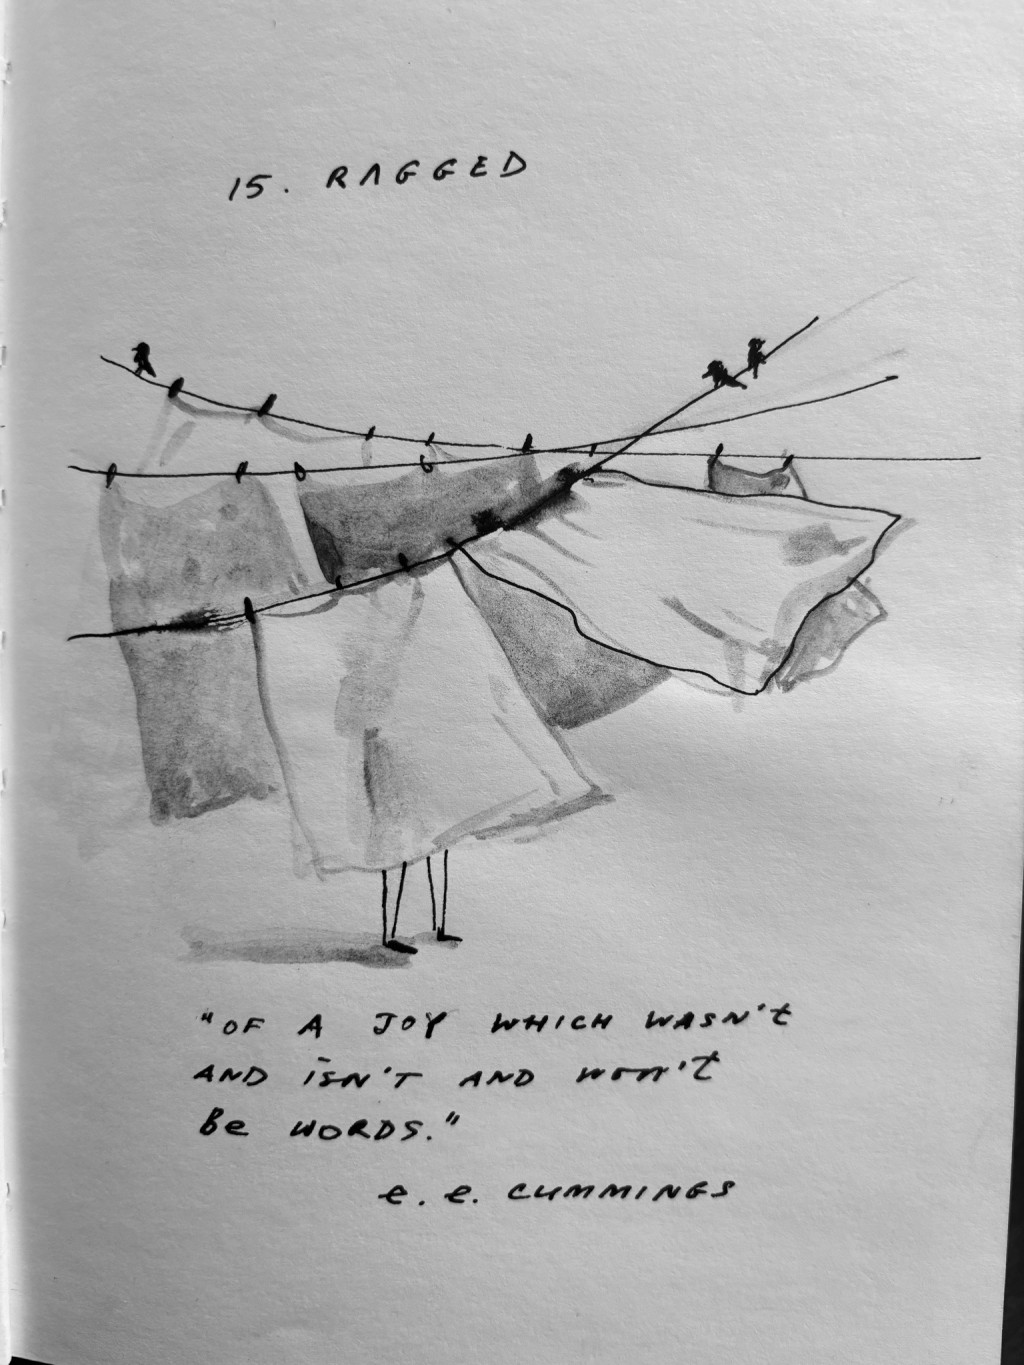 15. RAGGED
"OF A JOY WHICH WASN't
AND ISN'T AND WON't
Be WORDS."
e. e. CUMMINGS